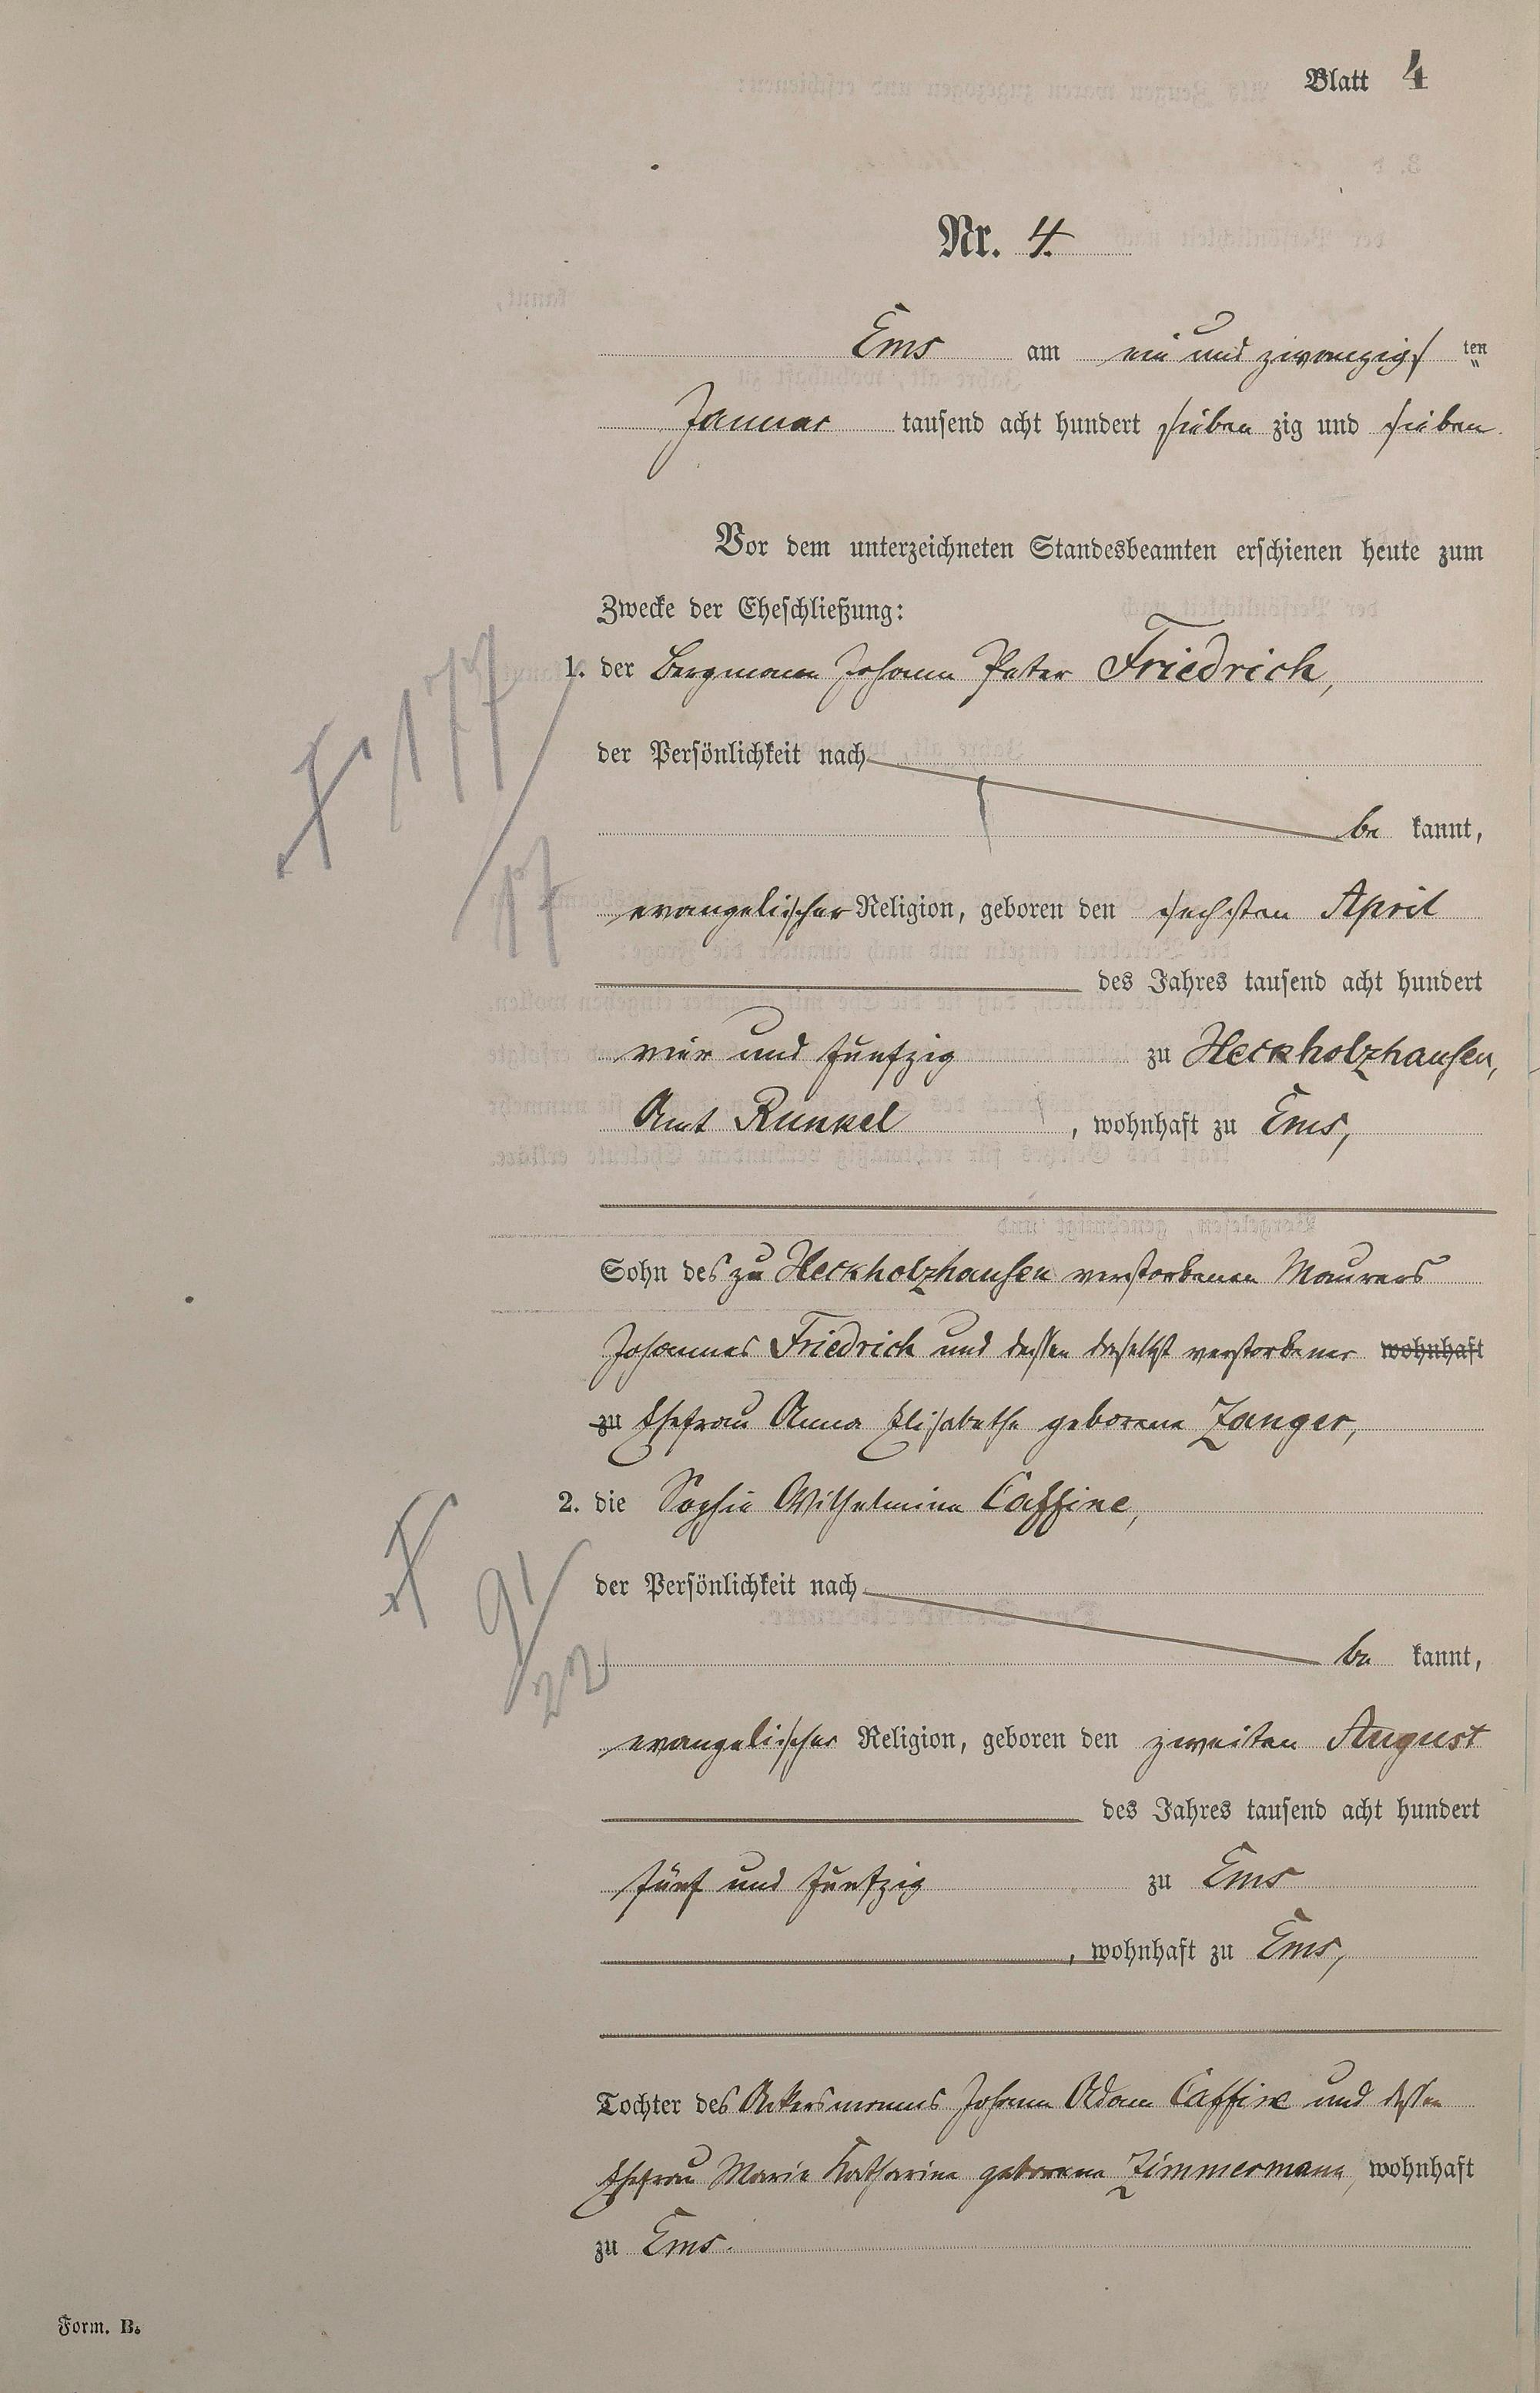 Blatt 4
Nr. 4.
Ems am ein und zwanzigsten
Januar tausend acht hundert sieben zig und sieben
Vor dem unterzeichneten Standesbeamten erschienen heute zum
Zwecke der Eheschließung:
1. der Bergmann Johann Peter Friedrich,
der Persönlichkeit nach
be kannt,
evangelischer Religion, geboren den sechsten April
des Jahres tausend acht hundert
vier und funfzig zu Heckholzhausen,
Amt Runkel, wohnhaft zu Ems,
Sohn des zu Heckholzhausen verstorbenen Maurers
Johannes Friedrich und dessen daselbst verstorbener wohnhaft
zu Ehefrau Anna Elisabethe geborene Zanger,
2. die Sophie Wilhelmine Caffine,
der Persönlichkeit nach
be kannt,
evangelischer Religion, geboren den zweiten August
des Jahres tausend acht hundert
fünf und funfzig zu Ems
, wohnhaft zu Ems,
Tochter des Ackersmanns Johann Adam Caffine und dessen
Ehefrau Marie Katharine geborene Zimmermann, wohnhaft
zu Ems.
Form. B.
177
17
91
22